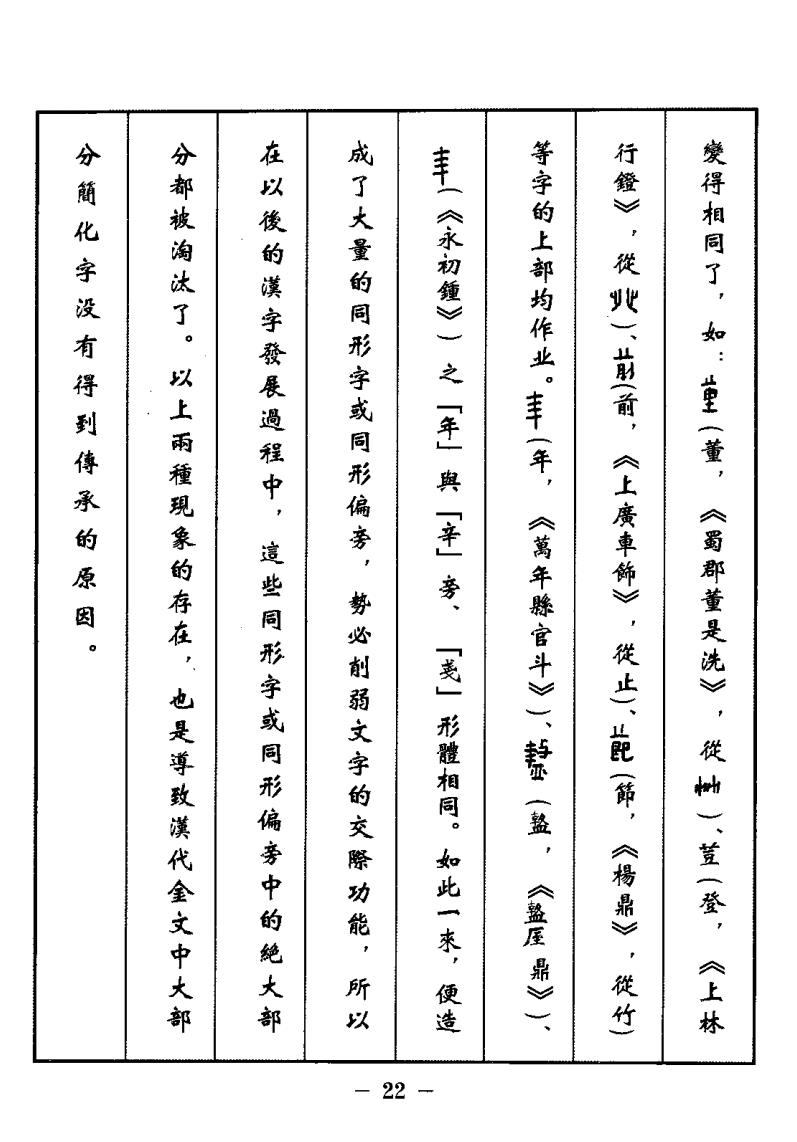 變得相同了，如：（董，《蜀郡董是洗》，從艸）、荳（登，《上林
行鐙》，從癶）、（前，《上廣車飾》，從止）、（節，《楊鼎》，從竹）
等字的上部均作业。（年，《萬年縣官斗》）、（盩，《盩厔鼎》）、
（《永初鍾》）之「年」與「幸」旁、「戔」形體相同。如此一來，便造
成了大量的同形字或同形偏旁，勢必削弱文字的交際功能，所以
在以後的漢字發展過程中，這些同形字或同形偏旁中的絶大部
分都被淘汰了。以上兩種現象的存在，也是導致漢代金文中大部
分簡化字没有得到傳承的原因。
— 22 —